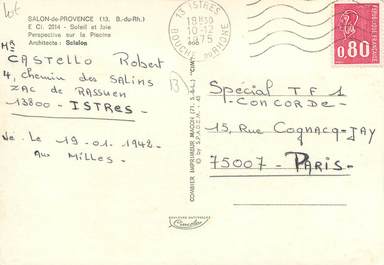 10€
SALON-de-PROVENCE (13. B.-du-Rh.)
E Ci. 2014 - Soleil et Joie
Perspective sur la Piscine
Architecte : Scialon
Mr
CASTELLO Robert
4, Chemin des SALINS
ZAC de RASSUEN
13800 - ISTRES -
Né. Le 19-01-1942-
Aux MILLES.
13 ISTRES
18H30
10-12
1975
BOUCHES DU RHÔNE
POSTES
RÉPUBLIQUE FRANÇAISE
0,80
13
COMBIER IMPRIMEUR MACON (71. S.-&-L.) "CIM"
© by S.P.A.D.E.M.
Spécial TF1
-CONCORDE-
15, Rue COGNACQ-JAY
75007 - PARIS -
Cimcolor